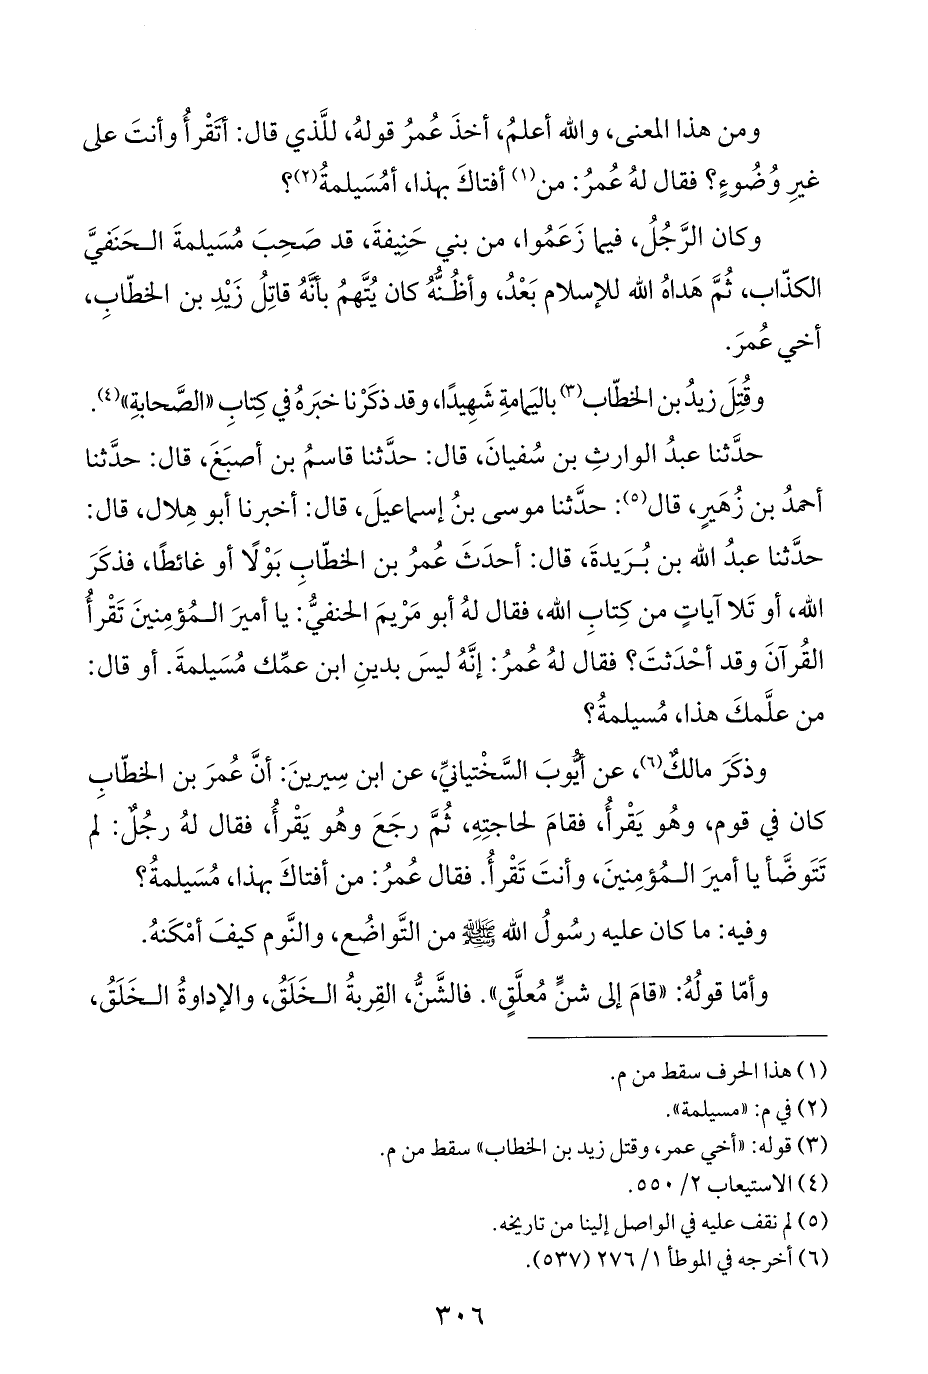 ومن هذا المعنى، والله أعلمُ، أخذَ عُمرُ قولهُ، للَّذي قال: أتَقْرأُ وأنتَ على
غيرِ وُضُوءٍ؟ فقال لهُ عُمرُ: من(١) أفتاكَ بهذا، أمُسَيلمةُ(٢)؟
وكان الرَّجُلُ، فيما زَعَمُوا، من بني حَنِيفةَ، قد صَحِبَ مُسَيلمةَ الحَنَفيَّ
الكذّاب، ثُمَّ هَداهُ الله للإسلام بَعْدُ، وأظُنُّهُ كان يُتَّهمُ بأنَّهُ قاتِلُ زَيْدِ بن الخطّابِ،
أخي عُمرَ.
وقُتِلَ زيدُ بن الخطّاب(٣) باليمامةِ شَهِيدًا، وقد ذكَرْنا خبَرهُ في كِتابِ «الصَّحابةِ»(٤).
حدَّثنا عبدُ الوارثِ بن سُفيانَ، قال: حدَّثنا قاسمُ بن أصبَغَ، قال: حدَّثنا
أحمدُ بن زُهَيرٍ، قال(٥): حدَّثنا موسى بنُ إسماعيلَ، قال: أخبرنا أبو هِلال، قال:
حدَّثنا عبدُ الله بن بُرَيدةَ، قال: أحدَثَ عُمرُ بن الخطّابِ بَوْلًا أو غائطًا، فذكَرَ
الله، أو تَلا آياتٍ من كِتابِ الله، فقال لهُ أبو مَرْيمَ الحنفيُّ: يا أميرَ المُؤمِنينَ تَقْرأُ
القُرآنَ وقد أحْدَثتَ؟ فقال لهُ عُمرُ: إنَّهُ ليسَ بدينِ ابن عمِّك مُسَيلمةَ. أو قال:
من علَّمكَ هذا، مُسيلمةُ؟
وذكَرَ مالكٌ(٦)، عن أيُّوبَ السَّخْتيانيِّ، عن ابن سِيرينَ: أنَّ عُمرَ بن الخطّابِ
كان في قوم، وهُو يَقْرأُ، فقامَ لحاجتِهِ، ثُمَّ رجَعَ وهُو يَقْرأُ، فقال لهُ رجُلٌ: لم
تَتَوضَّأ يا أميرَ المُؤمِنينَ، وأنتَ تَقْرأُ. فقال عُمرُ: من أفتاكَ بهذا، مُسَيلمةُ؟
وفيه: ما كان عليه رسُولُ الله ﷺ من التَّواضُع، والنَّوم كيفَ أمْكَنهُ.
وأمّا قولُهُ: «قامَ إلى شنٍّ مُعلَّقٍ». فالشَّنُّ، القِربةُ الخَلَقُ، والإداوةُ الخَلَقُ،
(١) هذا الحرف سقط من م.
(٢) في م: «مسيلمة».
(٣) قوله: «أخي عمر، وقتل زيد بن الخطاب» سقط من م.
(٤) الاستيعاب ٢/ ٥٥٠.
(٥) لم نقف عليه في الواصل إلينا من تاريخه.
(٦) أخرجه في الموطأ ١/ ٢٧٦ (٥٣٧).
٣٠٦